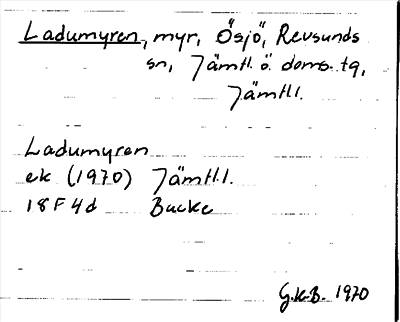 Ladumyren, myr, Ösjö, Revsunds
sn, Jämtl. ö. doms. tg,
Jämtl.
Ladumyren
ek (1970) Jämtl.l.
18F4d Backe
G.K.B. 1970